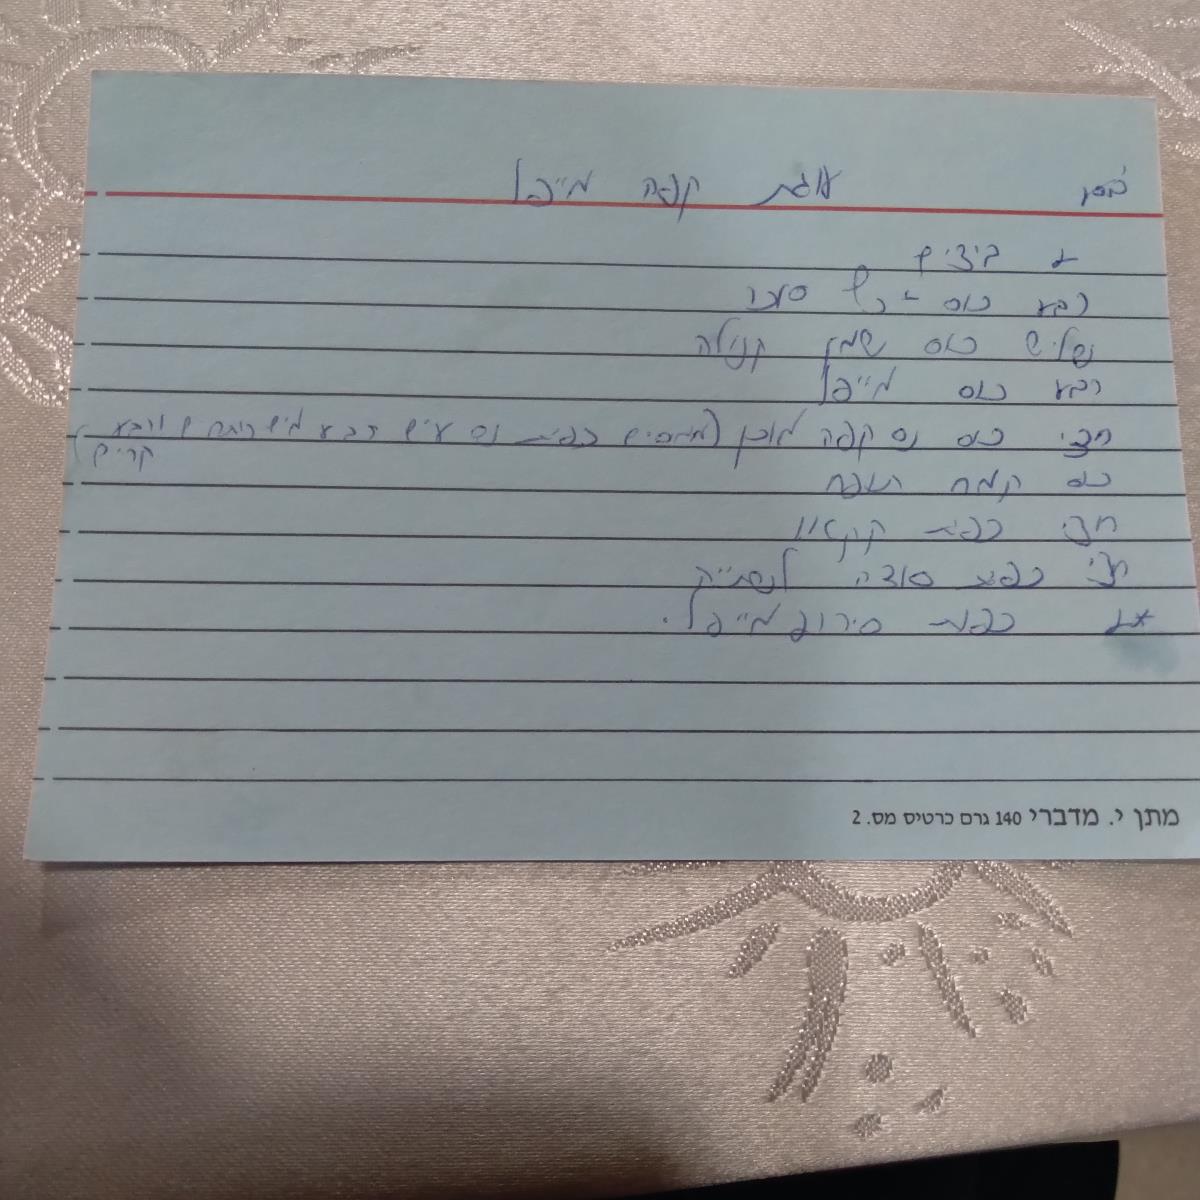 עוגת קפה מייפל
2 ביצים
רבע כוס - כף סוכר
שליש כוס שמן קנולה
רבע כוס מייפל
חצי כוס נס קפה מוכן (ממיסים כפית נס עם רבע מים רותחים ורבע
קרים)
כוס קמח תופח
חצי כפית קקאו
חצי כפית סודה לשתיה
*2 כפות סירופ מייפל.
מתן י. מדברי 140 גרם כרטיס מס. 2